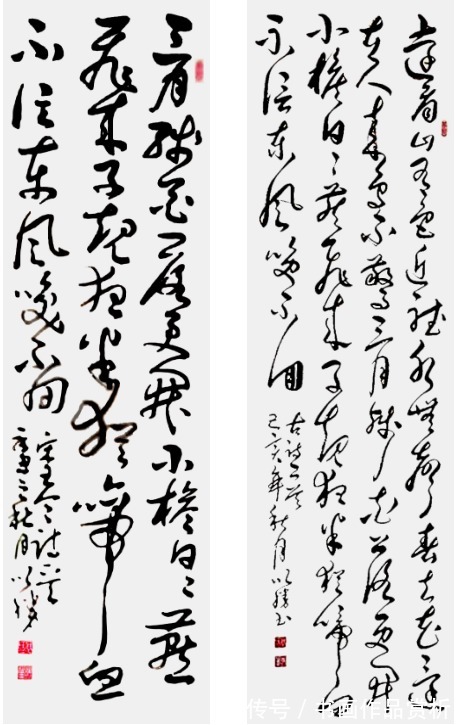 三月残花落更开小檐日日燕
飞来子规夜半犹啼血
不信东风唤不回
宋王令诗一首
秋月以胜
远看山有色近听水无声春去花还
在人来鸟不惊三月残花落更开
小檐日日燕飞来子规夜半犹啼血
不信东风唤不回
古诗二首
己亥年秋月以胜书
传号 / 书画作品赏析